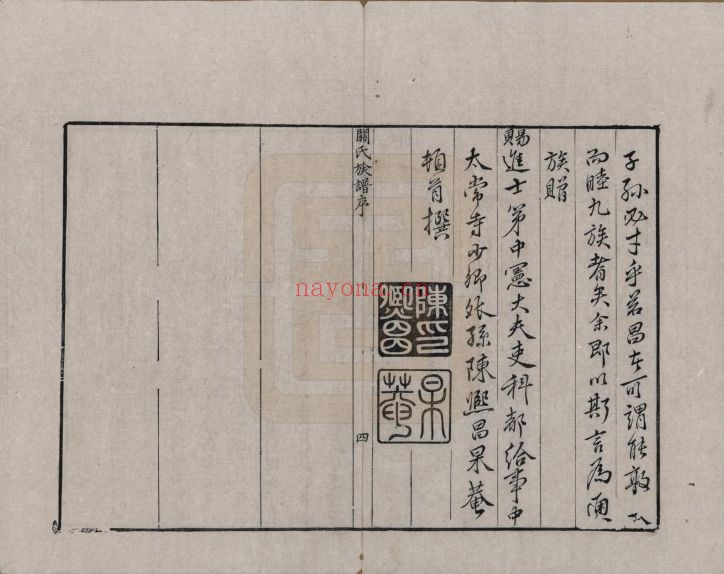 子孫必才乎若昌之可謂能敦
而睦九族者矣余即以斯言為
族贈
賜進士第中憲大夫吏科都給事中
太常寺少卿外孫陳熙昌杲菴
頓首撰
陳印熙昌
杲菴
關氏族譜序
四
nayona.cn